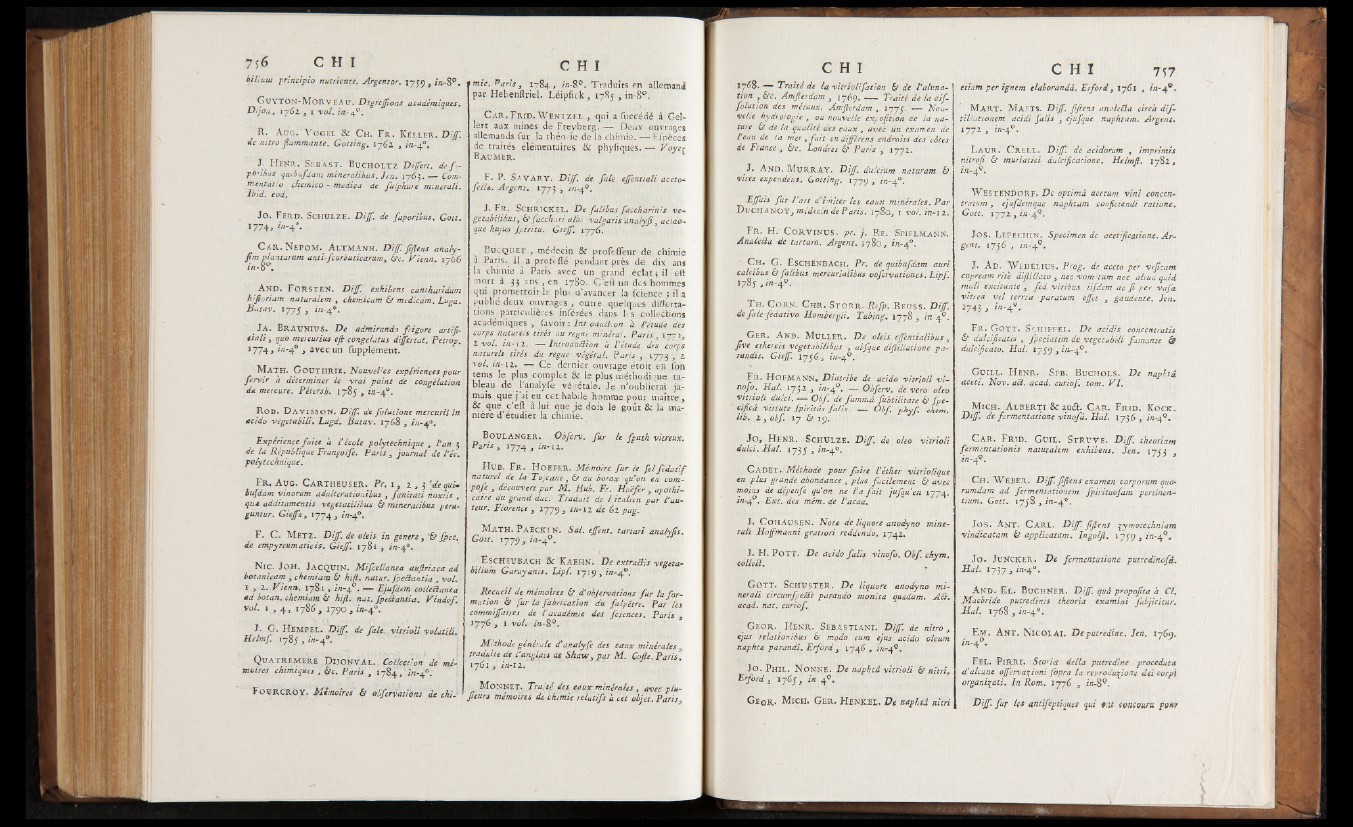 756 C H I
bilium principio nutriente. Argentor. 1759, in-8°.
GUYTON-MORVEAU. Digressions académiques.
Dijon, 1762, 1 vol. in-4°.
R. AUG. VOGEL & CH. FR. KELLER. Diss.
de nitro flammante. Gotting. 1762, in-4°.
J. HENR. SEBAST. BUCHOLTZ Dissert. de s-
poribus quibusdam mineralibus. Jen. 1763. — Com-
mentatio chemico-medica de sulphure minerali.
Ibid. eod.
JO. FERD. SCHULZE. Diss. de saporibus. Gott.
1774, in-4°.
CAR. NEPOM. ALTMANN. Diss. sistens analy-
sim plantarum anti-scorbuticarum, &c. Vienn. 1766
in-8°.
AND. FORSTEN. Diss. exhibens cantharidum
historiam naturalem, chemicam & medicam. Lugd.
Batav. 1775, in-4°.
JA. BRAUNIUS. De admirando frigore artifi-
ciali, quo mercurius est congelatus dissertat. Petrop.
1774, in-4°, avec un supplément.
MATH. GOUTHRIE. Nouvelles expériences pour
servir à déterminer le vrai point de congélation
du mercure. Pétersb. 1785, in-4°.
ROB. DAVISSON. Diss. de solutione mercurii in
acido vegetabili. Lugd. Batav. 1768, in-4°.
Expérience faite à l'école polytechnique, l'an 3
de la République Françoise. Paris, journal de l'éc.
polytechnique.
FR. AUG. CARTHEUSER. Pr. 1, 2, 3 de qui-
busdam vinorum adulterationibus, sanitati noxiis,
quæ additamentis vegetabilibus & mineralibus pera-
guntur. Giess., 1774, in-4°.
F. C. METZ. Diss. de oleis in genere, & spec.
de empyreumaticis. Giess. 1781, in-4°.
NIC. JOH. JACQUIN. Miscellanea austriaca ad
botanicam, chemiam & hist. natur. spectantia, vol.
1, 2. Vienn. 1781, in-4°. — Ejusdem collectanea
ad botan. chemiam & hist. nat. spectantia. Vindof.
vol. 1, 4, 1786, 1790, in-4°.
J. G. HEMPEL. Diss. de sale vitrioli volatili.
Helmst. 1785, in-4°.
QUATREMERE DIJONVAL. Collection de mé-
moires chimiques, &c. Paris, 1784, in-4°.
FOURCROY. Mémoires & observations de chi-
C H I
mie. Paris, 1784, in-8°. Traduits en allemand
par Hebenstriel. Léipsick, 1785, in-8°.
CAR. FRID. WENTZEL, qui a succédé à Gel-
lert aux mines de Freyberg. — Deux ouvrages
allemands sur la théorie de la chimie. — Espèces
de traités élémentaires & physiques. — Voyez
BAUMER.
F. P. SAVARY. Diss. de sale essentiali aceto-
sellæ. Argent. 1773, in-4°.
J. FR. SCHRICKEL. De salibus saccharinis ve-
getabilibus, & sacchari albi vulgaris analysi, acido-
que hujus spiritu. Giess. 1776.
BUCQUET, médecin & professeur de chimie
à Paris. Il a professé pendant près de dix ans
la chimie à Paris avec un grand éclat; il est
mort à 33 ans, en 1780. C'est un des hommes
qui promettoit le plus d'avancer la science; il a
publié deux ouvrages, outre quelques disserta-
tions particulières insérées dans les collections
académiques, savoir: Introduction à l'étude des
corps naturels tirés du regne minéral. Paris, 1771,
2 vol. in-12. — Introduction à l'étude des corps
naturels tirés du regne végéral. Paris, 1773, 2
vol. in-12. — Ce dernier ouvrage étoit en son
tems le plus complet & le plus méthodique ta-
bleau de l'analyse végétale. Je n'oublierai ja-
mais que j'ai eu cet habile homme pour maître,
& que c'est à lui que je dois le goût & la ma-
nière d'étudier la chimie.
BOULANGER. Observ. sur le spath vitreux.
Paris, 1774, in-12.
HUB. FR. HOEFER. Mémoire sur le sel sédatif
naturel de la Toscane, & du borax qu'on en com-
pose, découvert par M. Hub. Fr. Hoëfer, apothi-
caire du grand duc. Traduit de l'italien par l'au-
teur. Florence, 1779, in-12 de 62 pag.
MATH. PAECKEN. Sal. essent. tartari analysis.
Gott. 1779, in-4°.
ESCHEUBACH & KAEHN. De extractis vegeta-
bilium Garayanis. Lips. 1719, in-4°.
Recueil de mémoires & d'observations sur la for-
mation & sur la fabrication du salpêtre. Par les
commissaires de l'académie des sciences. Paris,
1776, 1 vol. in-8°.
Méthode générale d'analyse des eaux minérales,
traduite de l'anglais de Shaw, par M. Coste. Paris,
1761, in-12.
MONNET. Traité des eaux minérales, avec plu-
sieurs mémoires de chimie relatifs à cet objet. Paris,
C H I
1768. — Traité de la vitriolisation & de l'aluna-
tion, &c. Amsterdam, 1769. — Traité de la dis-
solution des métaux. Amsterdam, 1775. — Nou-
velle hydrologie, ou nouvelle exposition de la na-
ture & de la qualité des eaux, avec un examen de
l'eau de la mer, fait en différens endroits des côtes
de France, &c. Londres & Paris, 1772.
J. AND. MURRAY. Diss. dulcium naturam &
vires expendens. Gotting. 1779, in-4°.
Essais sur l'art d'imiter les eaux minérales. Par
DUCHANOY, médecin de Paris. 1780, 1 vol. in-12.
FR. H. CORVINUS. pr. j. RE. SPIELMANN.
Analecta de tartaro. Argent. 1780, in-4°.
CH. G. ESCHENBACH. Pr. de quibusdam auri
calcibus & salibus mercurialibus observationes. Lips.
1785, in-4°.
TH. CORN. CHR. STORR. Resp. REUSS. Diss.
de sale sedativo Hombergii. Tubing. 1778, in 4°.
GER. AND. MULLER. De oleis essentialibus,
sive ethereis vegetabilibus, absque distillatione pa-
randis. Giess. 1756, in-4°.
FR. HOFMANN. Diatribe de acido vitrioli vi-
noso. Hal. 1732, in-4°. — Observ. de vero oleo
vitrioli dulci. — Obs. de summâ subtilitate & spe-
cificâ virtute spiritûs salis. — Obs. phys. chem.
lib. 2, obs. 17 & 19.
JO. HENR. SCHULZE. Diss. de oleo vitrioli
dulci. Hal. 1735, in-4°.
CADET. Méthode pour faire l'éther vitriolique
en plus grande abondance, plus facilement & avec
moins de dépense qu'on ne l'a fait jusqu'en 1774.
in-4°. Ext. des mém. de l'acad.
J. COHAUSEN. Nota de liquore anodyno mine-
rali Hoffmanni gratiori reddendo. 1742.
J. H. POTT. De acido salis vinoso. Obs. chym.
collect.
GOTT. SCHUSTER. De liquore anodyno mi-
nerali circumspectè parando monita quædam. Act.
acad. nat. curios.
GEOR. HENR. SEBASTIANI. Diss. de nitro,
ejus relationibus & modo cum ejus acido oleum
naphtæ parandi. Erford, 1746, in-4°.
JO. PHIL. NONNE. De naphtâ vitrioli & nitri.
Erford, 1765, in 4°.
GEOR. MICH. GER. HENKEL. De naphtâ nitri
C H I 757
etiam per ignem elaborandâ. Erford, 1761, in-4°.
MART. MATTS. Diss. sistens analecta circà dis-
tillationem acidi salis, ejusque naphtam. Argent.
1772, in-4°.
LAUR. CRELL. Diss. de acidorum, imprimis
nitrosi & muriatici dulcificatione. Helmst. 1782,
in-4°.
WESTENDORF. De optimâ acetum vini concen-
tratum, ejusdemque naphtam conficiendi ratione.
Gott. 1772, in-4°.
JOS. LEPECHIN. Specimen de acetificatione. Ar-
gent. 1756, in-4°.
J. AD. WEDELIUS. Prog. de aceto per vesicam
cupream ritè distillato, nec vomitum nec aliud quid
mali excitante, sed viribus iisdem ac si per vasa
vitrea vel terrea paratum esset, gaudente. Jen.
1743, in-4°.
FR. GOTT. SCHIEFEL. De acidis concentratis
& dulcificatis, speciatim de vegetabili fumante &
dulcificato. Hal. 1759, in-4°.
GUILL. HENR. SEB. BUCHOLS. De naphtâ
aceti. Nov. act. acad. curios. tom. VI.
MICH. ALBERTI & auct. CAR. FRID. KOCK.
Diss. de fermentatione vinosâ. Hal. 1736, in-4°.
CAR. FRID. GUIL. STRUVE. Diss. theoriam
fermentationis naturalem exhibens. Jen. 1753,
in-4°.
CH. WEBER. Diss. sistens examen corporum quo-
rumdam ad fermentationem spirituosam pertinen-
tium. Gott. 1758, in-4°.
JOS. ANT. CARL. Diss. sistens zymotechniam
vindicatam & applicatam. Ingolst. 1759, in-4°.
JO. JUNCKER. De fermentatione putredinosâ.
Hal. 1737, in-4°.
AND. EL. BUCHNER. Diss. quâ proposita à Cl.
Macbride putredinis theoria examini subjicitur.
Hal. 1768, in-4°.
EM. ANT. NICOLAI. De putredine. Jen. 1769.
in-4°.
FEL. PIRRI. Storia della putredine proceduta
d'alcune osservazioni sopra la reproduzione dei corpi
organizati. In Rom. 1776, in-8°.
Diss. sur les antiseptiques qui ont concouru pour